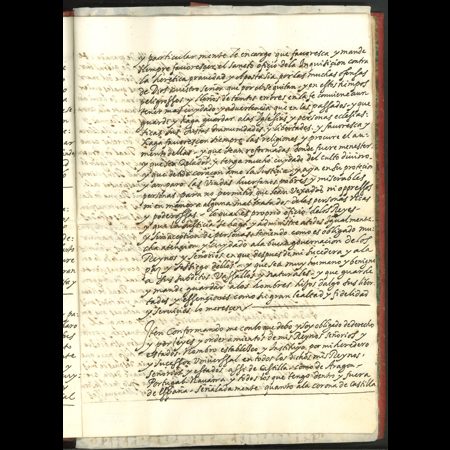 y particular mente le encargo que fauoresca, y mande
siempre fauorescer el sancto offiçio de la Inquisiçion contra
la heretica prauedad y apostasia, por las muchas ofensas
de Dios nuestro señor que por el se quitan, y en estos tiempos
peligrossos y llenos de tantos errores en la fe conuiene aun
tener mas cuydado y aduertençia que en los passados, y que
guarde y haga guardar a las Iglesias y personas ecclesias
ticas sus justas immunidades y libertades, y fauoresca y
haga fauorescer siempre las religiones y procure el au
mento dellas, y que sean reformadas donde fuere menester
y que sea zelador, y tenga mucho cuydado del culto diuino,
y que de todo coraçon ame la Justiçia y aya en su proteccion
y amparo las viudas huerfanos pobres y miserables
personas para no permitir que sean vexados, ni oppressos
ni en manera alguna mal tratados de las personas ricas
y poderossas, lo qual es proprio offiçio de los Reyes,
y que la justicia se haga y administre a todos igualmente
y sin acception de personas teniendo como es obligado mu
cha atençion y cuydado a la buena gouernacion de los
Reynos y señorios en que despues de mi sucedera, y al
bien y sosiego dellos, y que sea muy humano y benigno
a sus subditos Vassallos y naturales, y que guarde
y mande guardar a los hombres hijos dalgo sus liber
tades y essençiones como su gran lealtad y fidelidad
y seruiçios lo mereçen
Iten Conformando me con lo que debo y soy obligado de derecho
y por leyes y ordenamientos de mis Reynos señorios y
estados Nombro establezco y instituyo, por mi heredero
y sucessor Vniuerssal en todos los dichos mis Reynos
señorios y estados assi de Castilla, como de Aragon
Portugal Nauarra y todos los que tengo dentro y fuera
de España, señaladamente quanto a la corona de Castilla